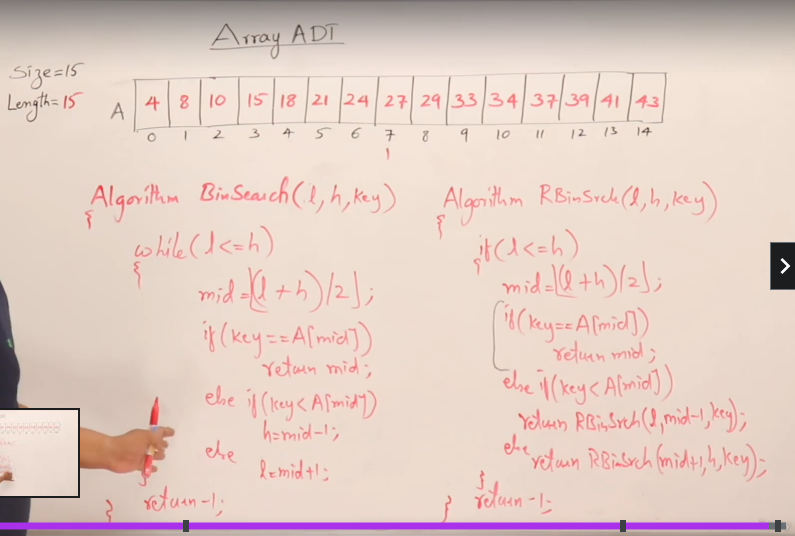 Array ADT
Size=15
Length=15
A 4 8 10 15 18 21 24 27 29 33 34 37 39 41 43
0 1 2 3 4 5 6 7 8 9 10 11 12 13 14
Algorithm BinSearch(l,h,key)
{
while(l<=h)
{
mid=⌊(l+h)/2⌋;
if(key==A[mid])
return mid;
else if(key<A[mid])
h=mid-1;
else
l=mid+1;
}
return-1;
}
Algorithm RBinSrch(l,h,key)
{
if(l<=h)
{
mid=⌊(l+h)/2⌋;
if(key==A[mid])
return mid;
else if(key<A[mid])
return RBinSrch(l,mid-1,key);
else return RBinSrch(mid+1,h,key);
}
return-1;
}